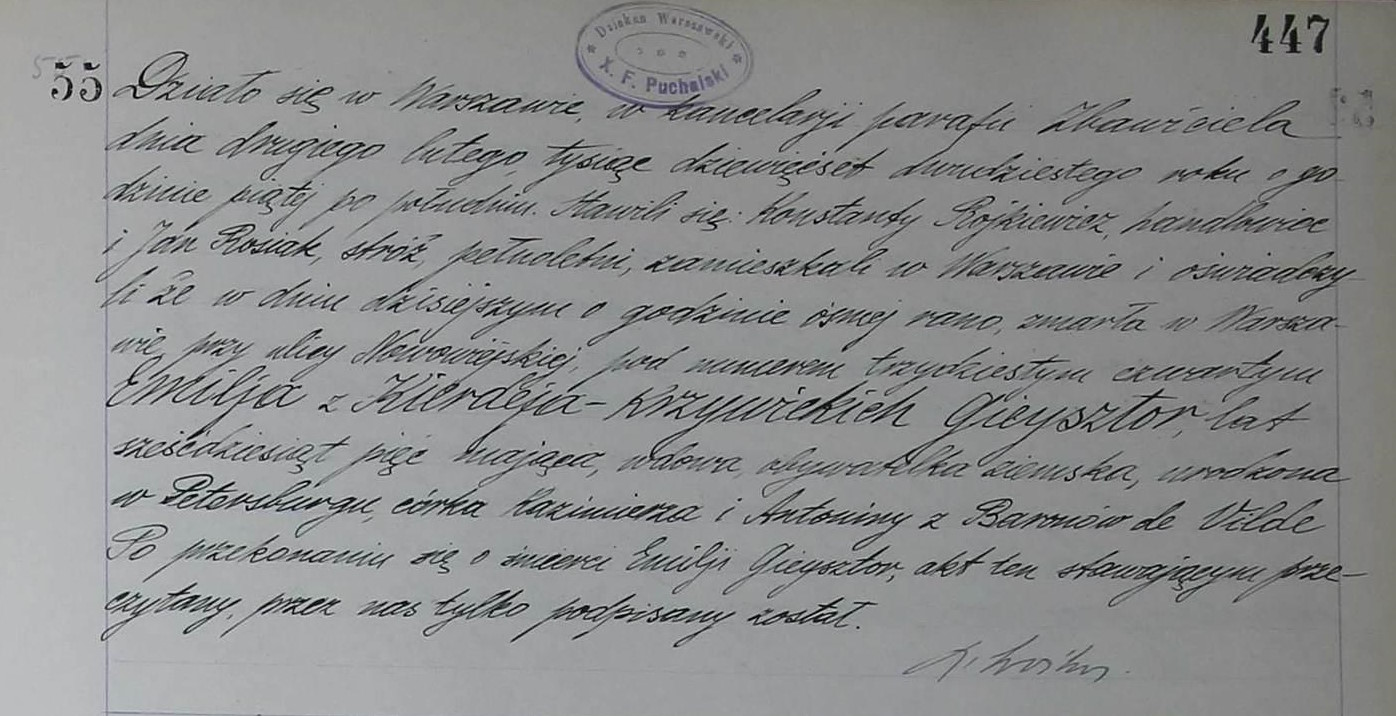 Dziekan Warszawski
X. F. Puchalski
447
55 Działo się w Warszawie, w kancelaryi parafii Zbawiciela
dnia drugiego lutego, tysiąc dziewięćset dwudziestego roku o go-
dzinie piątej po południu. Stawili się: Konstanty Rójkiewicz, handlowiec
i Jan Rosiak, stróż, pełnoletni, zamieszkali w Warszawie i oświadczy-
li że w dniu dzisiejszym o godzinie ósmej rano, zmarła w Warsza-
wie, przy ulicy Nowowiejskiej, pod numerem trzydziestym czwartym
Emilja z Kierdeja-Krzywickich Gieysztor, lat
sześćdziesiąt pięć mająca, wdowa, obywatelka ziemska, urodzona
w Petersburgu, córka Kazimierza i Antoniny z Baronów de Vilde
Po przekonaniu się o śmierci Emilji Gieysztor, akt ten stawającym prze-
czytany, przez nas tylko podpisany został.